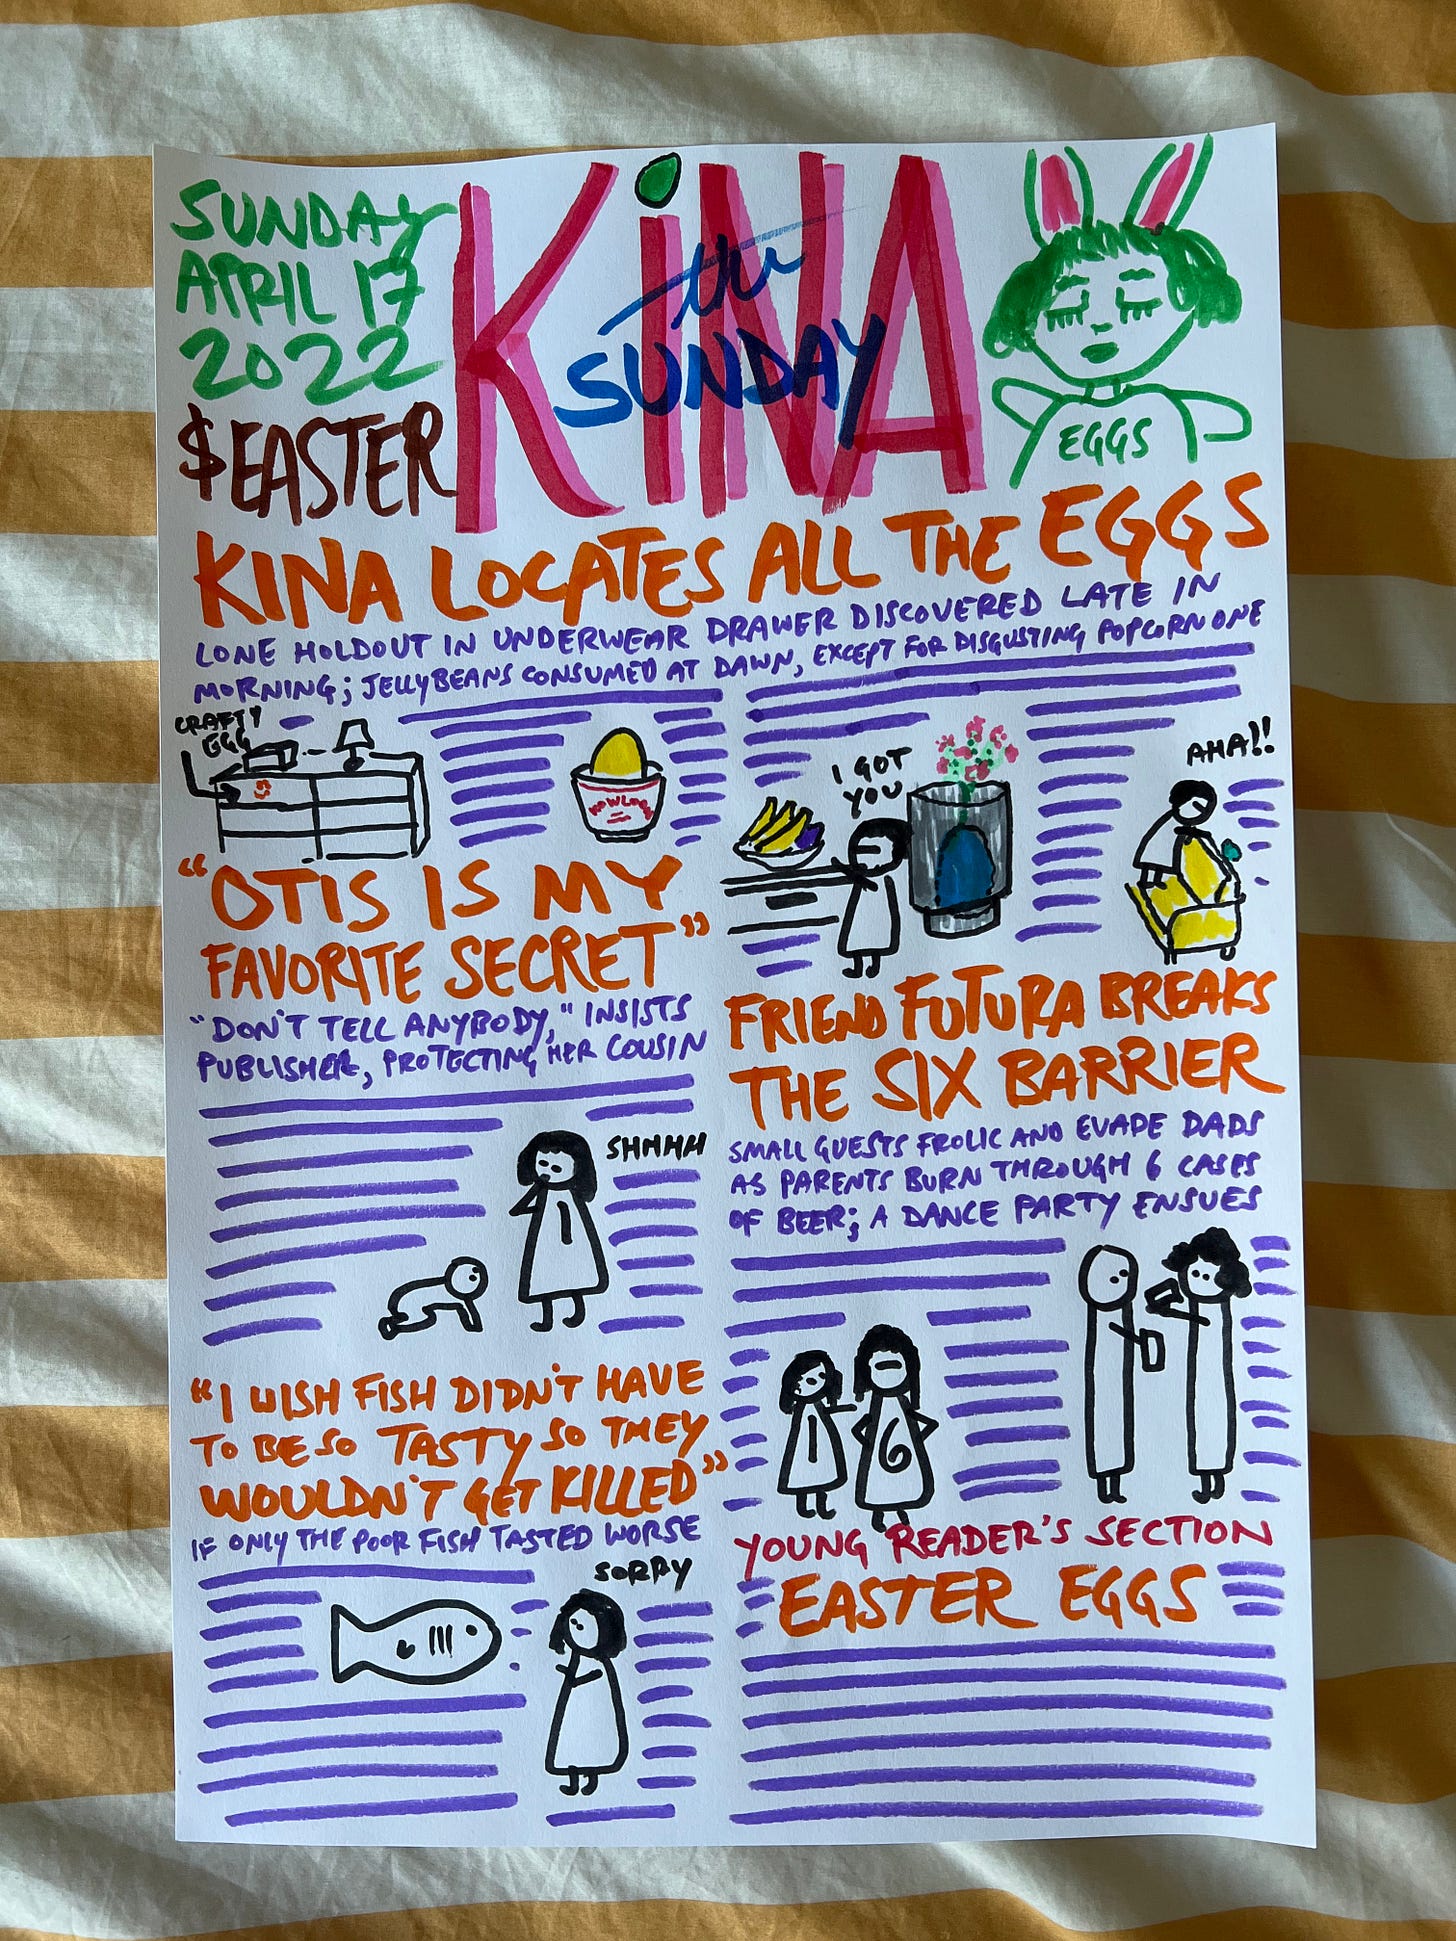 SUNDAY
APRIL 17
2022
$EASTER
KiNA
the
SUNDAY
EGGS
KINA LOCATES ALL THE EGGS
LONE HOLDOUT IN UNDERWEAR DRAWER DISCOVERED LATE IN
MORNING; JELLYBEANS CONSUMED AT DAWN, EXCEPT FOR DISGUSTING POPCORN ONE
CRAFTY
EGG
I GOT
YOU
AHA!!
"OTIS IS MY
FAVORITE SECRET"
"DON'T TELL ANYBODY," INSISTS
PUBLISHER, PROTECTING HER COUSIN
SHHHH
"I WISH FISH DIDN'T HAVE
TO BE SO TASTY SO THEY
WOULDN'T GET KILLED"
IF ONLY THE POOR FISH TASTED WORSE
SORRY
FRIEND FUTURA BREAKS
THE SIX BARRIER
SMALL GUESTS FROLIC AND EVADE DADS
AS PARENTS BURN THROUGH 6 CASES
OF BEER; A DANCE PARTY ENSUES
6
YOUNG READER'S SECTION
EASTER EGGS